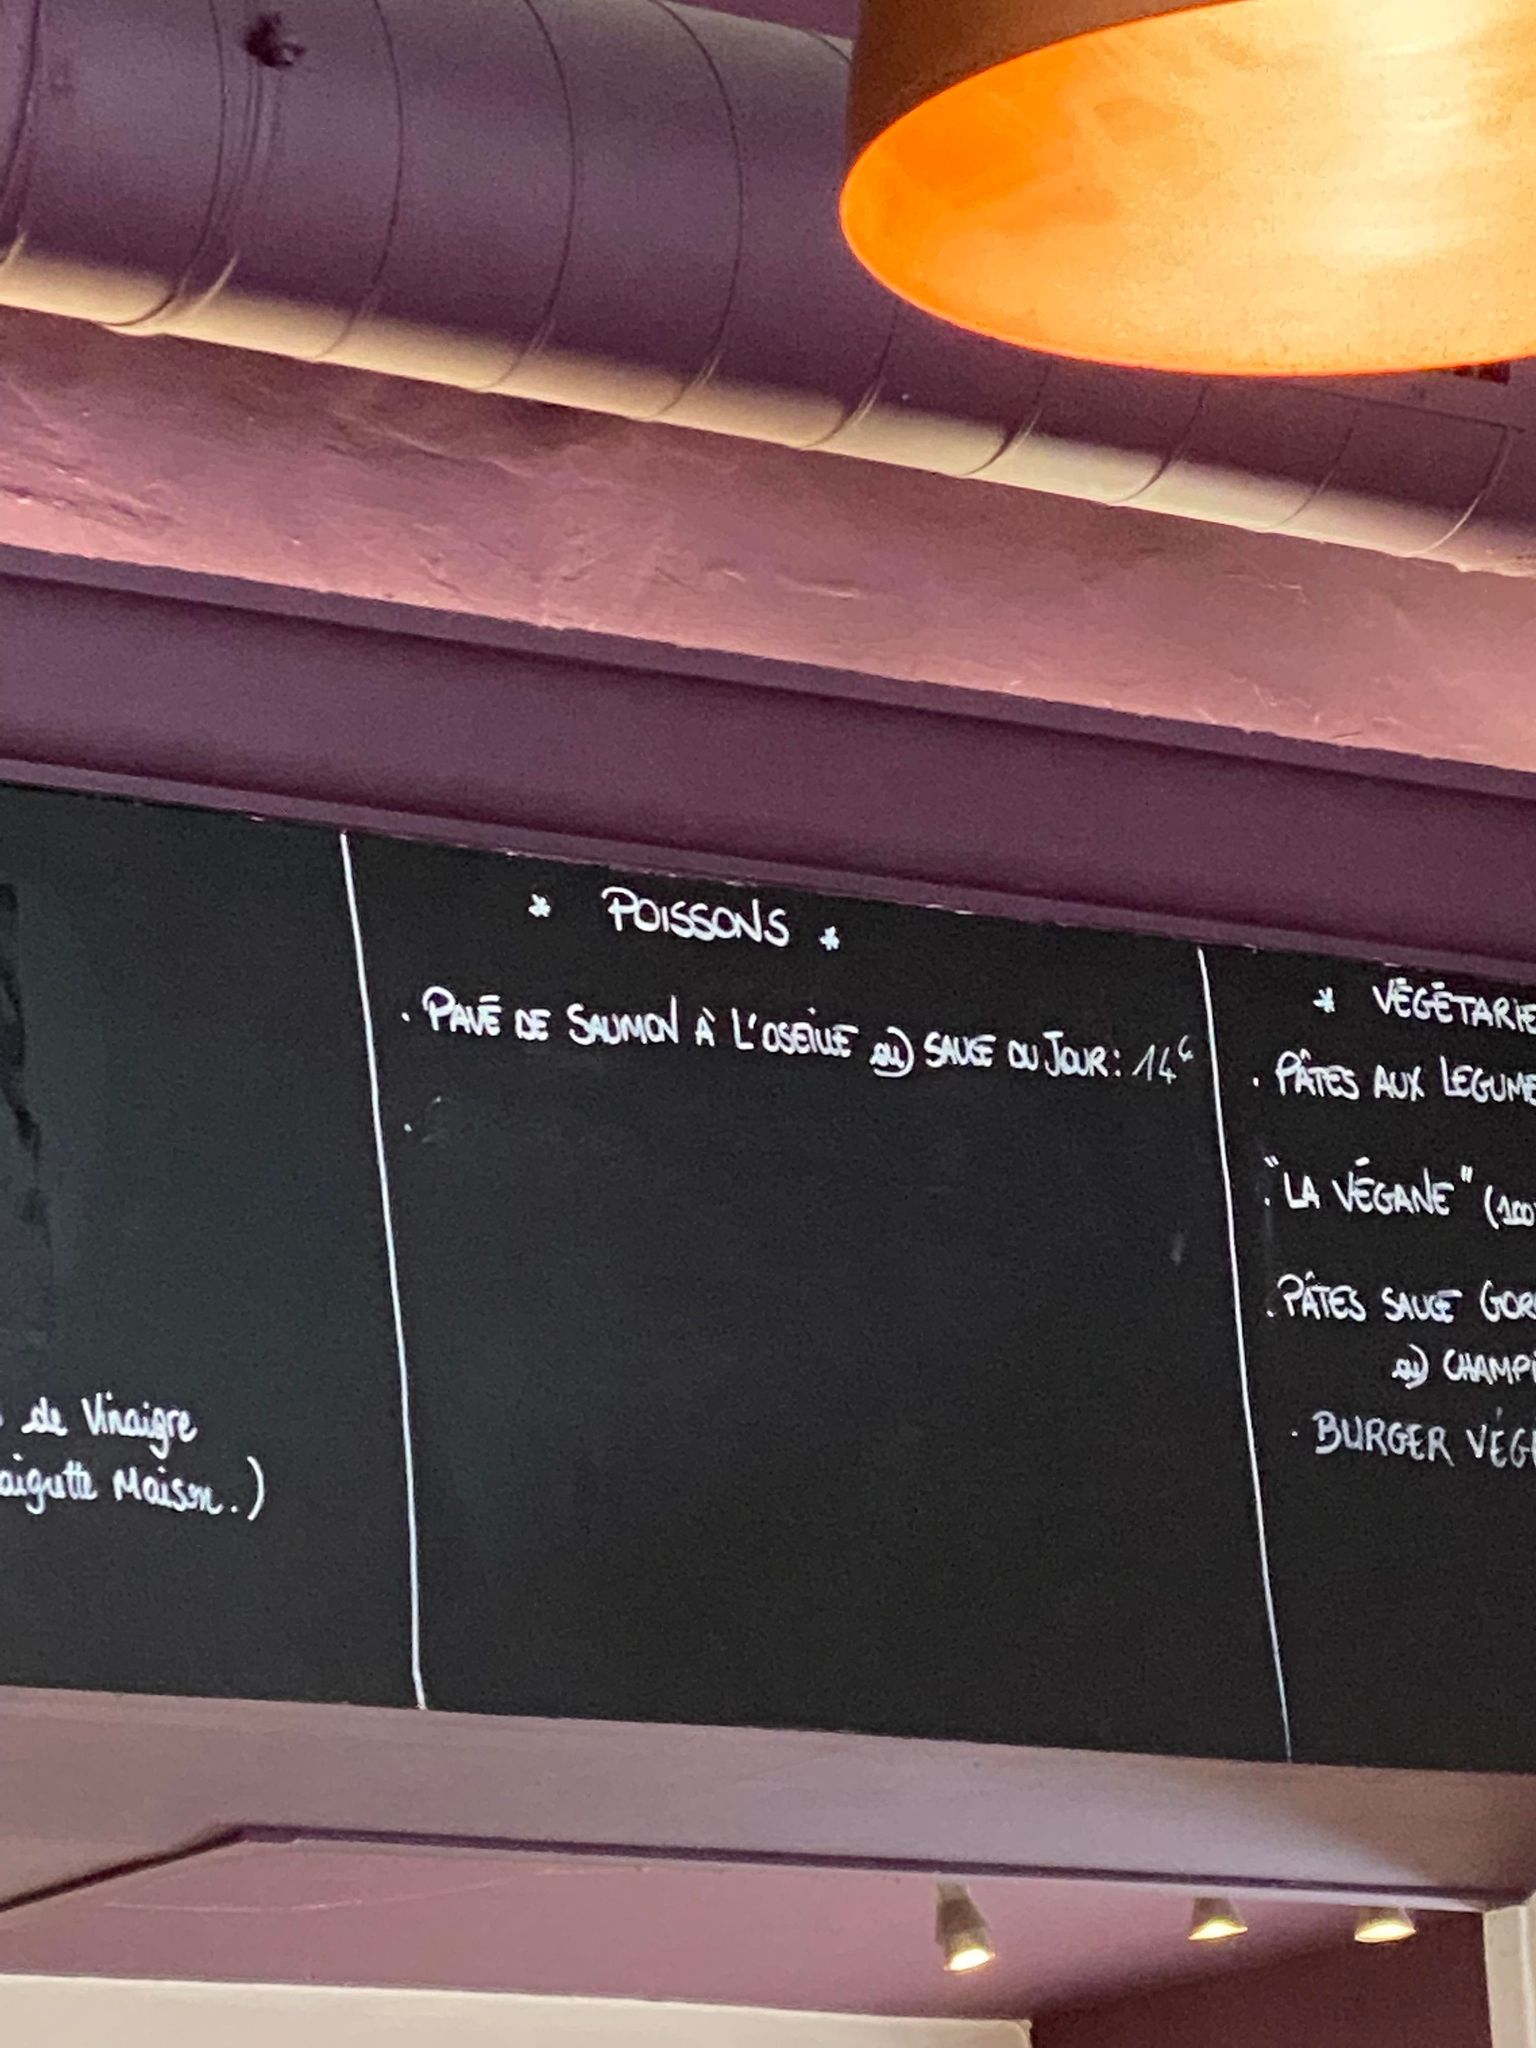 de Vinaigre
Maison.)
* POISSONS *
. PAVÉ DE SAUMON À L'OSEILLE ou) SAUCE DU JOUR: 14€
.
* VÉGÉTARIE
. PÂTES AUX LEGUME
. "LA VÉGANE" (100
. PÂTES SAUCE GOR
ou) CHAMPI
. BURGER VÉG